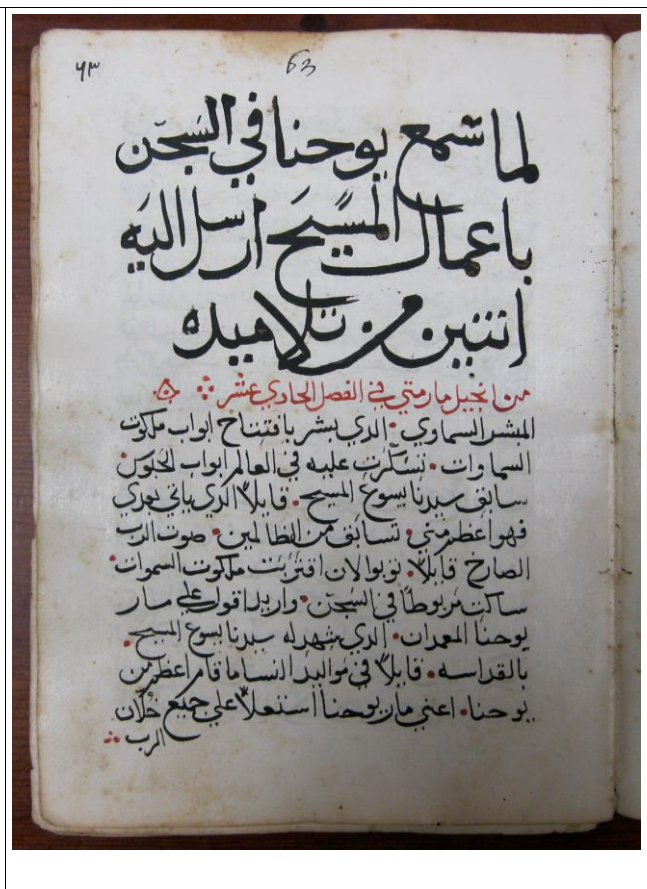 ٦٣ 63
لما سمع يوحنا في السجن
باعمال المسيح ارسل اليه
اتنين من تلاميده
من انجيل مار متي في الفصل الحادي عشر
المبشر السماوي • الدي بشر بافتتاح ابواب ملكوت
السماوات • تسكرت عليه في العالم ابواب الحبوس
سابق سيدنا يسوع المسيح • قايلاً الدي ياتي بعدي
فهو اعظم مني • تسابق من الظالمين • صوت الرب
الصارخ قايلاً • توبوا لان اقتربت ملكوت السموات •
ساكت مربوطاً في السجن • واريد اقول علي مار
يوحنا المعمدان • الدي شهد له سيدنا يسوع المسيح •
بالقداسه • قايلاً في مواليد النسا ما قام اعظم من
يوحنا • اعني مار يوحنا استعلا علي جميع خلان
الرب